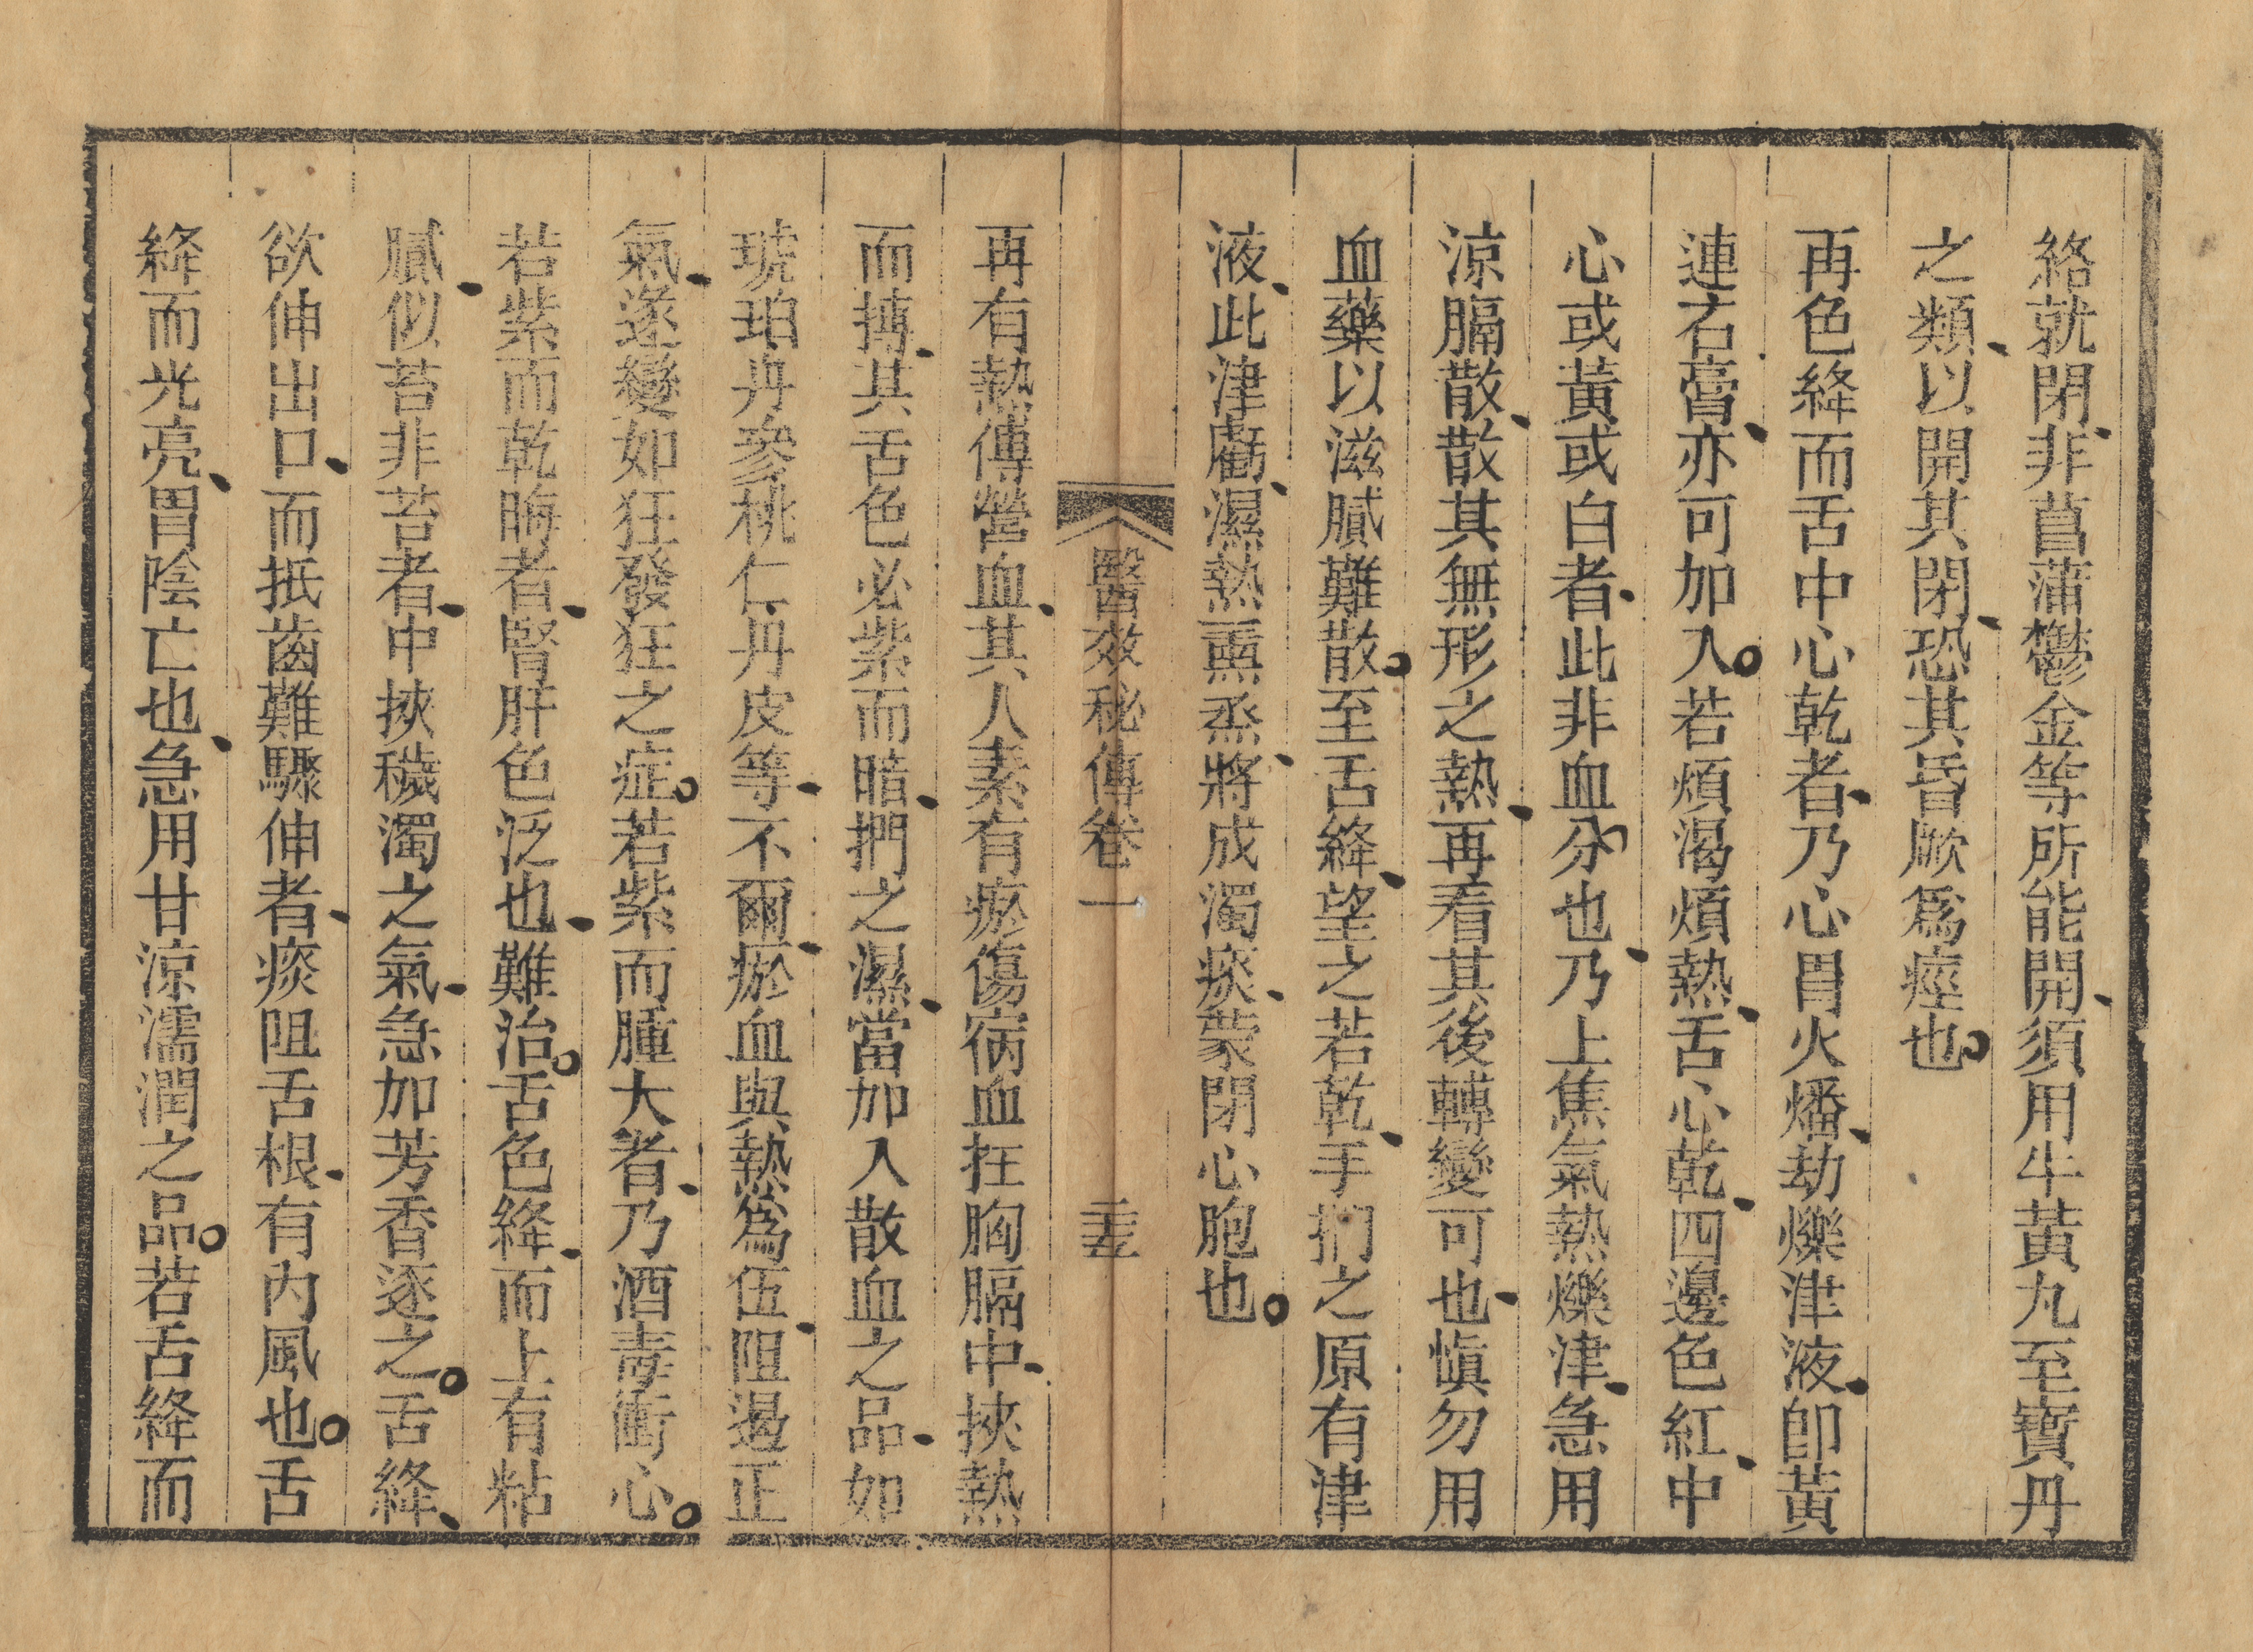 絡就閉、非菖蒲鬱金等所能開、須用牛黃丸至寶丹
之類、以開其閉、恐其昏厥爲痙也。
再色絳而舌中心乾者、乃心胃火燔、劫爍津液、卽黃
連石膏、亦可加入。若煩渴煩熱、舌心乾、四邊色紅、中
心或黃或白者、此非血分也、乃上焦氣熱爍津、急用
涼膈散、散其無形之熱、再看其後轉變可也、愼勿用
血藥以滋膩難散。至舌絳、望之若乾、手捫之原有津
液、此津虧、濕熱熏烝、將成濁痰、蒙閉心胞也。
醫效秘傳卷一
再有熱傳營血、其人素有瘀傷病血在胸膈中、挾熱
而搏、其舌色必紫而暗、捫之濕、當加入散血之品、如
琥珀丹參桃仁丹皮等、不爾、瘀血與熱爲伍、阻遏正
氣、遂變如狂發狂之症。若紫而腫大者、乃酒毒衝心。
若紫而乾晦者、腎肝色泛也、難治。舌色絳、而上有粘
膩、似苔非苔者、中挾穢濁之氣、急加芳香逐之。舌絳、
欲伸出口、而抵齒難驟伸者、痰阻舌根、有內風也。舌
絳而光亮、胃陰亡也、急用甘涼濡潤之品。若舌絳而